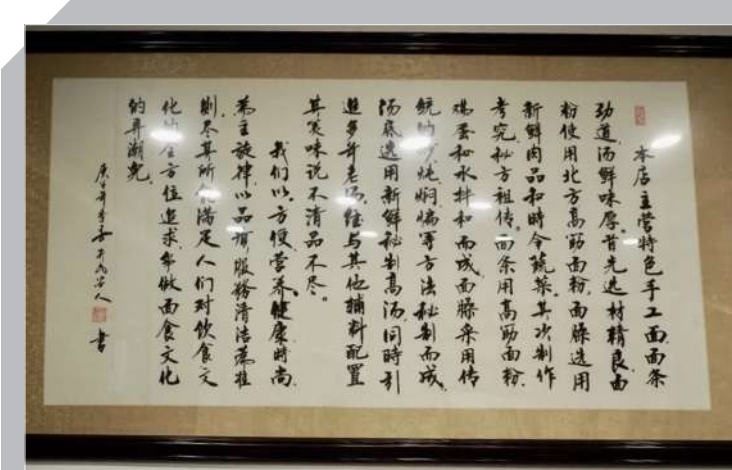 本店主营特色手工面面条
劲道汤鲜味厚。首先选材精良面
粉使用北方高筋面粉.面臊选用
新鲜肉品和時令蔬菜.其次制作
考究秘方祖传。面条用高筋面粉.
鸡蛋和水拌和而成面臊采用传
统的炒炖焖煸等方法秘制而成.
汤底选用新鲜秘制高汤.同時引
進多年老汤.经与其他辅料配置
其美味说不清品不尽。
我们以.方便营养.健康時尚.
為主旋律以品质服務清洁為准
则.尽其所能满足人们对饮食文
化的全方位追求.争做面食文化
的弄潮児.
庚子年
人
書